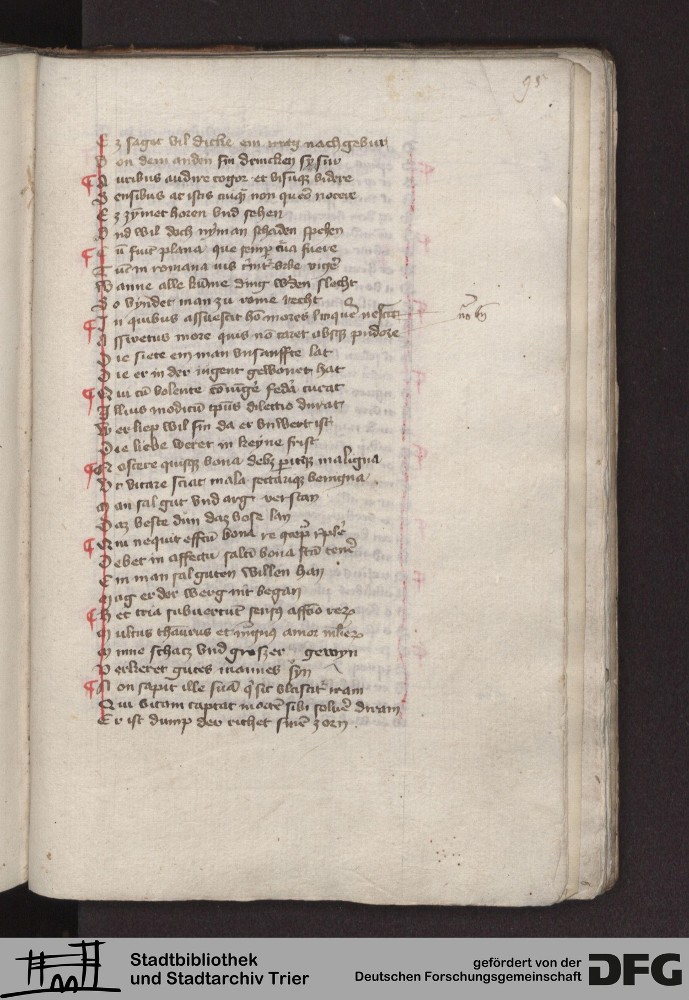 95
Ez saget vil dicke ein man nachgebur
Von dem anden sin drincken sy sur
Auribus audire cogor et visusque videre
Sensibus ac istis cuiquam non quero nocere
Ez zymet horen vnd sehen
Vnd wil doch nyman schaden spehen
Cum fuit plana que semper curua fuere
Tunc in romana ius urbe
Wanne alle krume ding werden slecht
So vyndet man zu rome recht
In quibus assuescit homo mores linquere nescit
Assuetus more quis non caret absque pudore
Die siete ein man vnsanffte lat
Die er in der iugent gewonet hat
Qui cum volente coniuge federa curat
Illius modicum tempus dilectio durat
Wer liep wil sin da er vnwert ist
Die liebe weret in keyne frist
Noscere quisque bona debet pariterque maligna
Vt vitare sciat mala sectarique benigna
Man sal gut vnd arg verstan
Daz beste dun daz bose lan
Qui nequit effectum bona re
Debet in affectu saltim bona tenere
Ein man sal guten willen han
Mag er der werg nit began
Hec tria subuertunt sensus
Multus thesaurus et magnus amor mulierum
Minne schacz vnd groszer gewyn
Verkeret gutes mannes syn
Non sapit ille suam iram
Qui vitam captat sibi soluere diram
Er ist dump der richet sinen zorn
Stadtbibliothek
und Stadtarchiv Trier
gefördert von der
Deutschen Forschungsgemeinschaft
DFG